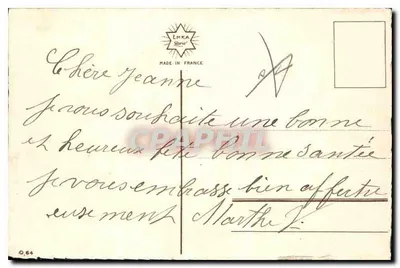 EMKA
MADE IN FRANCE
Chère Jeanne
je vous souhaite une bonne
et heureux fête bonne santée
je vous embrasse bien affectu
eusement Marthe J.
CPAPHIL
O, 64